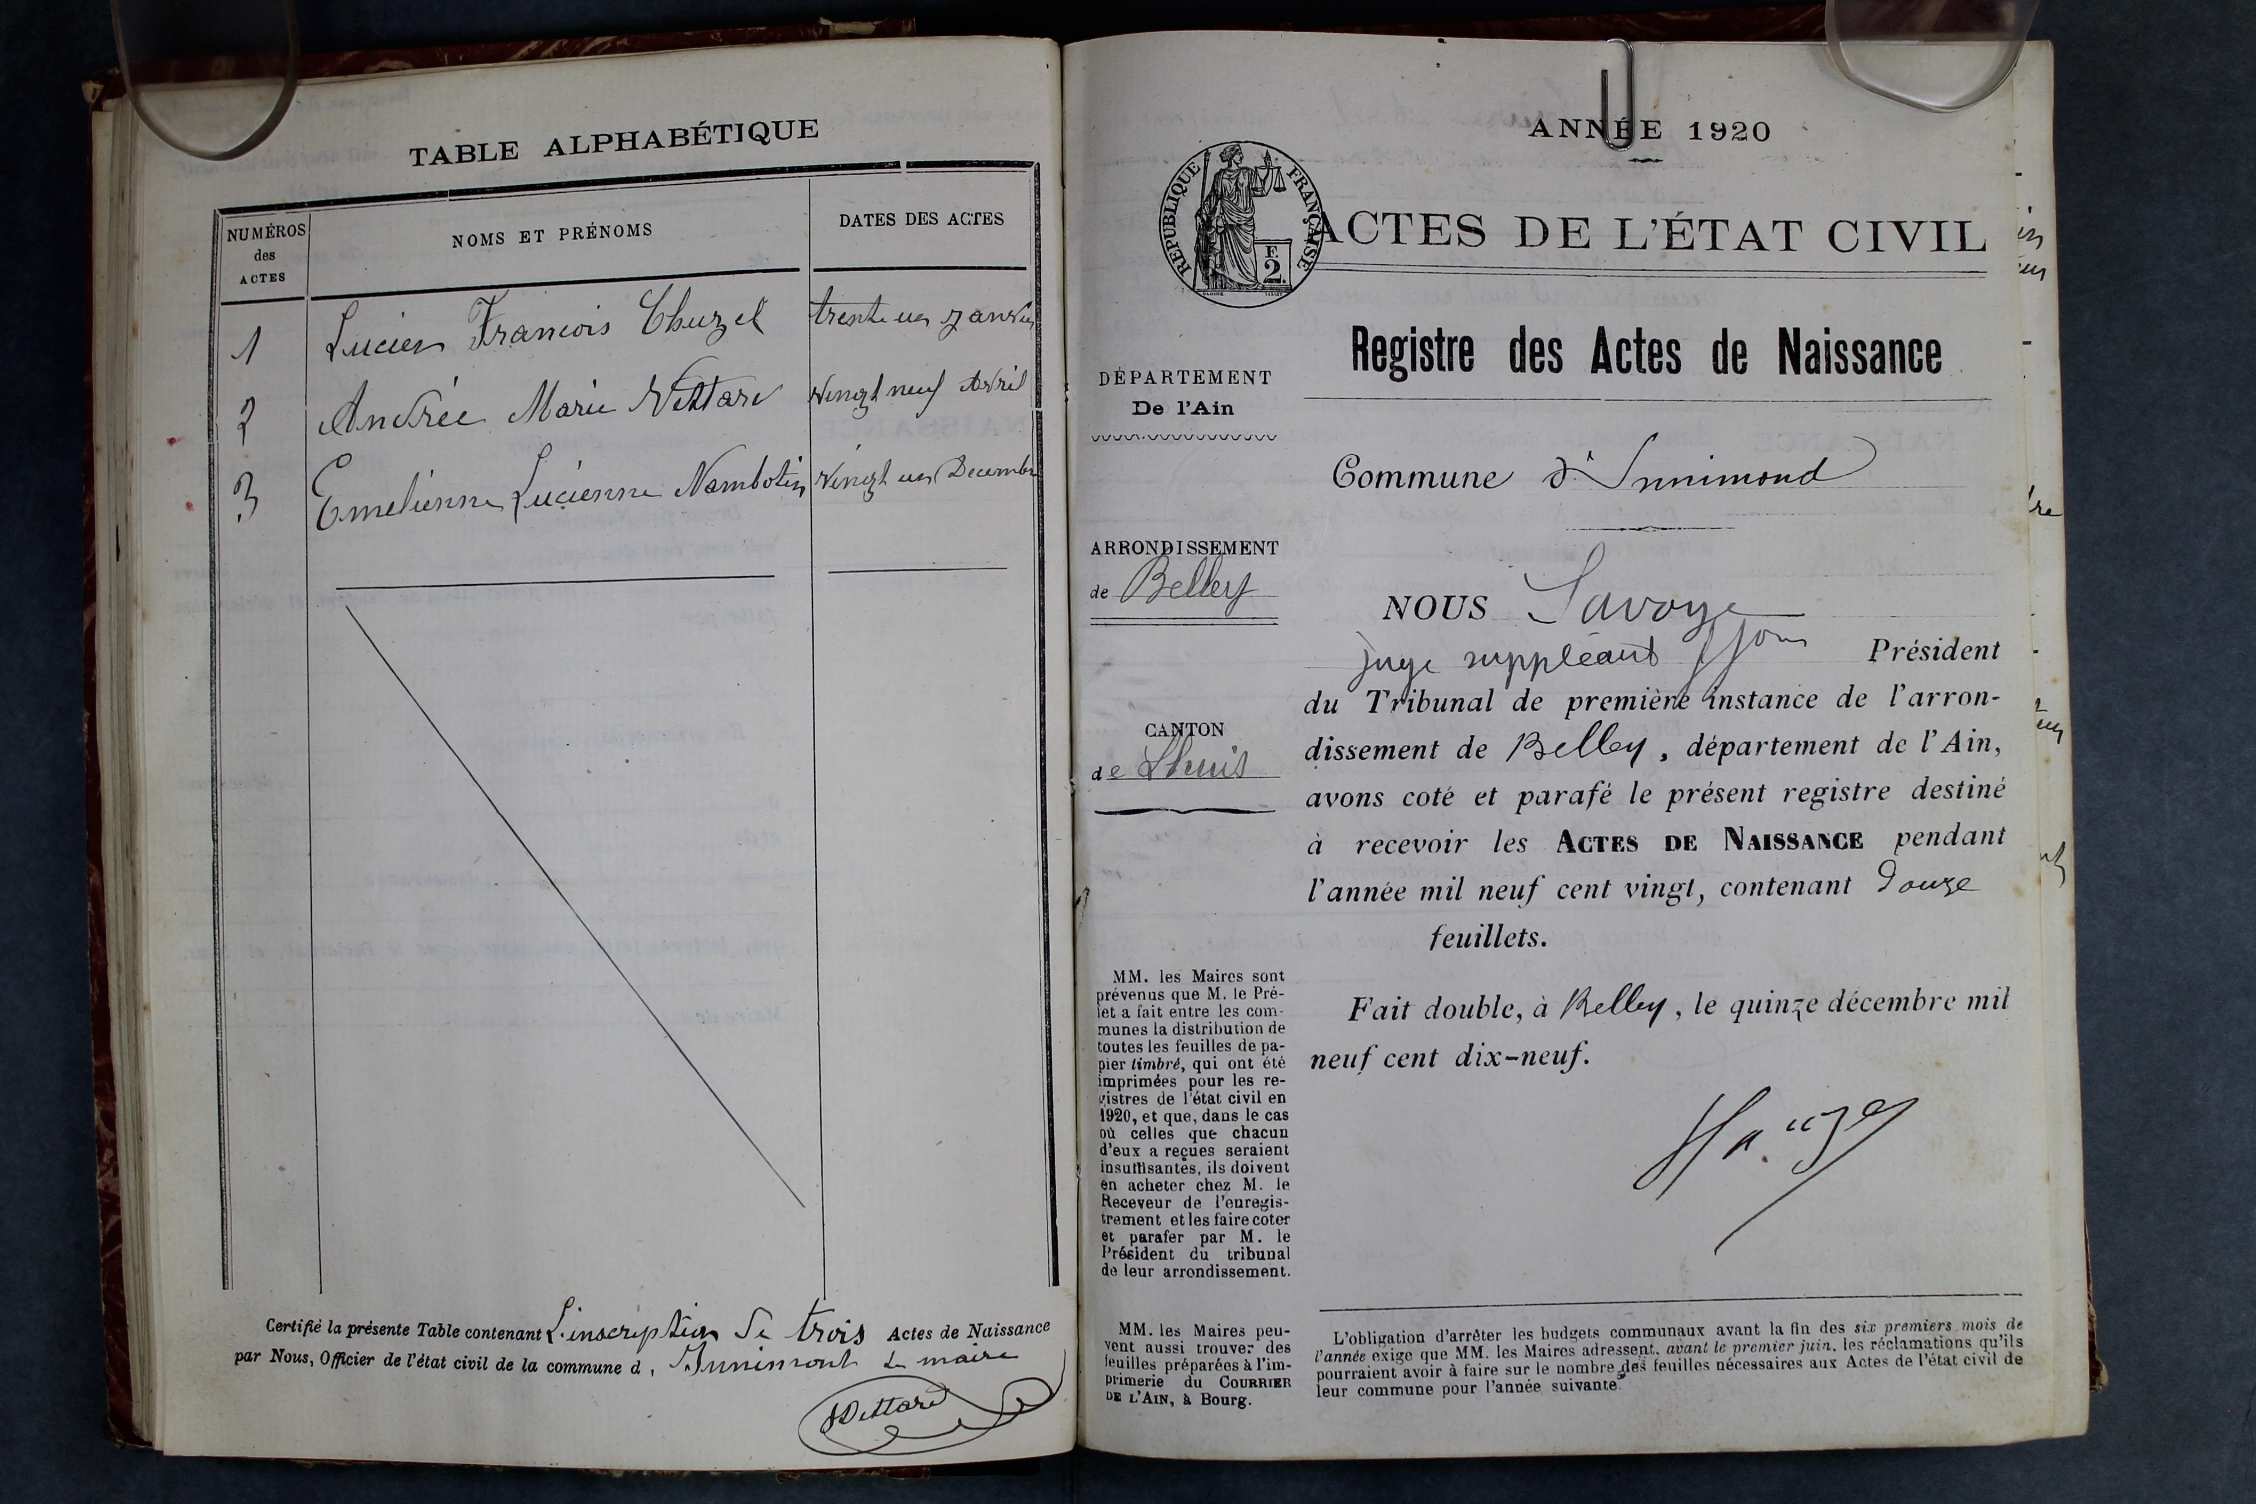 TABLE ALPHABÉTIQUE
NUMÉROS
des
ACTES
NOMS ET PRÉNOMS
DATES DES ACTES
1 Lucien Francois Chuzel trente un janvier
2 Andrée Marie Vettard vingt neuf Avril
3 Emelienne Lucienne Nambotin vingt un Decembre
Certifié la présente Table contenant L'inscription de trois Actes de Naissance
par Nous, Officier de l'état civil de la commune d, Innimont le maire
Vettard
ANNÉE 1920
RÉPUBLIQUE FRANÇAISE
F.
2.
ACTES DE L'ÉTAT CIVIL
Registre des Actes de Naissance
DÉPARTEMENT
De l'Ain
Commune d'Innimond
ARRONDISSEMENT
de Belley
CANTON
de Lhuis
NOUS Savoye
juge suppléant Président
du Tribunal de première instance de l'arron-
dissement de Belley, département de l'Ain,
avons coté et parafé le présent registre destiné
à recevoir les ACTES DE NAISSANCE pendant
l'année mil neuf cent vingt, contenant Douze
feuillets.
Fait double, à Belley, le quinze décembre mil
neuf cent dix-neuf.
MM. les Maires sont
prévenus que M. le Pré-
fet a fait entre les com-
munes la distribution de
toutes les feuilles de pa-
pier timbré, qui ont été
imprimées pour les re-
gistres de l'état civil en
1920, et que, dans le cas
où celles que chacun
d'eux a reçues seraient
insuffisantes, ils doivent
en acheter chez M. le
Receveur de l'enregis-
trement et les faire coter
et parafer par M. le
Président du tribunal
de leur arrondissement.
MM. les Maires peu-
vent aussi trouver des
feuilles préparées à l'im-
primerie du COURRIER
DE L'AIN, à Bourg.
L'obligation d'arrêter les budgets communaux avant la fin des six premiers mois de
l'année exige que MM. les Maires adressent, avant le premier juin, les réclamations qu'ils
pourraient avoir à faire sur le nombre des feuilles nécessaires aux Actes de l'état civil de
leur commune pour l'année suivante.